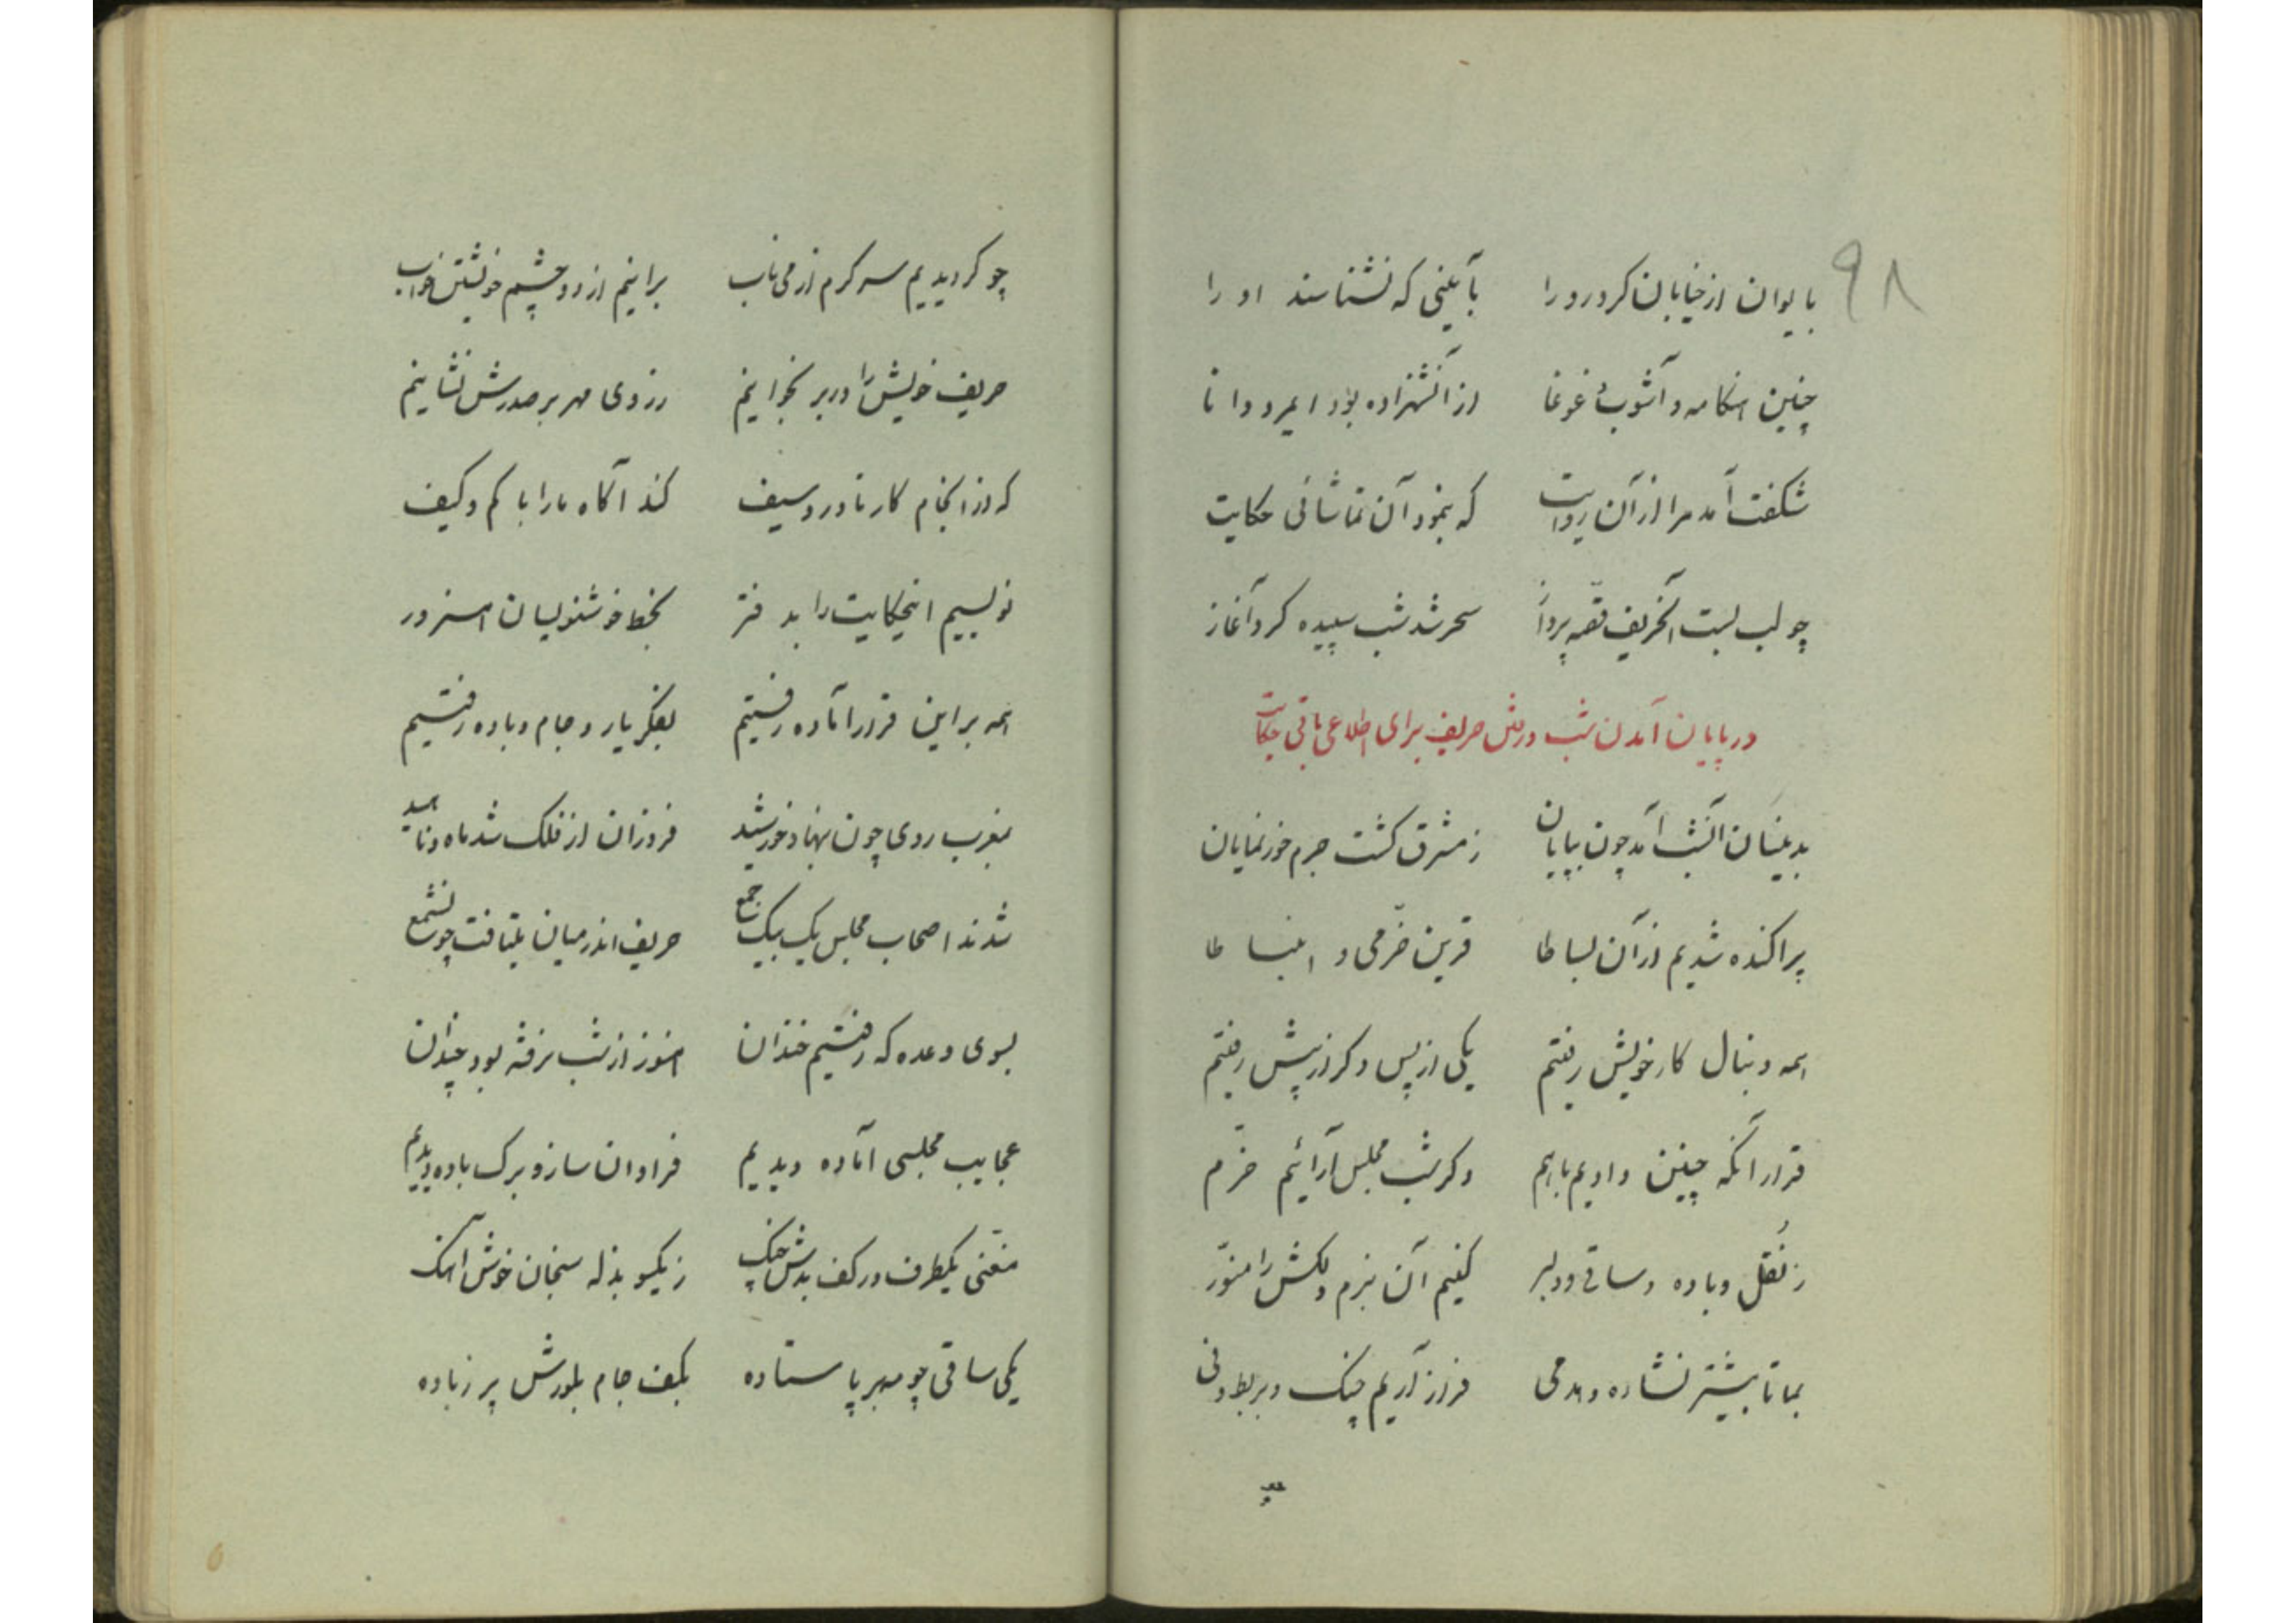 ۹۸
بایوان از خیابان کرد رو را بآیینی که نشناسند او را
چنین هنکامه و آشوب و غوغا از آنشهزاده بود ایمرد دانا
شکفت آمد مرا از آن روایت که بنمود آن تماشائی حکایت
چو لب بست آنحریف قصّه پرداز سحر شد شب سپیده کرد آغاز
در پایان آمدن شب و رفتن حریف برای اطلاع باقی حکایت
بدینسان آنشب آمد چون بپایان ز مشرق کشت جرم خور نمایان
پراکنده شدیم از آن بساطا قرین خرّمی و انبساطا
همه دنبال کار خویش رفتیم یکی از پس دکر از پیش رفتیم
قرار آنکه چنین دادیم باهم دکر شب مجلس آرائیم خرّم
ز نُقل و باده و ساقی و دلبر کنیم آن بزم دلکش را منوّر
بما تا بیشتر نشاه دهد می فراز آریم چنک و بربط و نی
چو کردیدیم سر کرم از می ناب برانیم از دو چشم خویشتن خواب
حریف خویش را در بر بخوانیم ز روی مهر بر صدرش نشانیم
که از انجام کار نادر و سیف کند آکاه ما را با کم و کیف
نویسیم اینحکایت را بدفتر بخط خوشنویسان هنرور
همه بر این قرار آماده رفتیم بفکر یار و جام و باده رفتیم
بمغرب روی چون بنهاد خورشید فروزان از فلک شد ماه و ناهید
شدند اصحاب مجلس یک بیک جمع حریف اندر میان بنشافت چون شمع
بسوی وعده که رفتیم خندان هنوز از شب نرفته بود چندان
عجایب مجلسی آماده دیدیم فراوان ساز و برک باده دیدیم
مغنّی یکطرف در کف بدش چنک ز یکسو بذله سنجان خوش آهنک
یکی ساقی چو مهر بر پا ستاده بکف جام بلورش پر ز باده